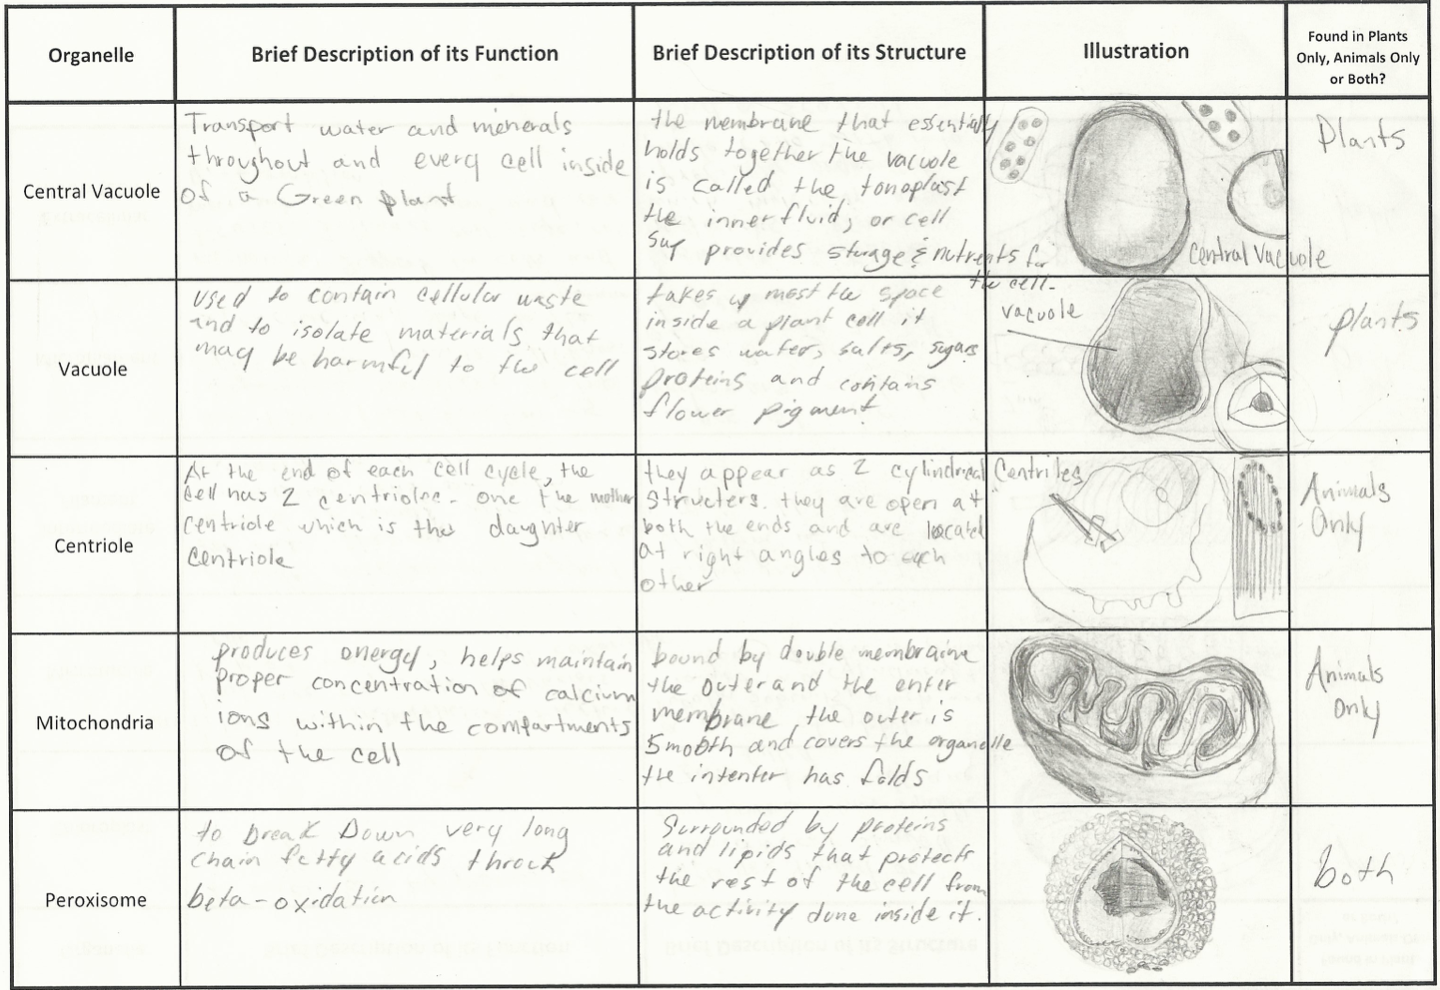 Organelle
Brief Description of its Function
Brief Description of its Structure
Illustration
Found in Plants
Only, Animals Only
or Both?
Central Vacuole
Transport water and minerals
throughout and every cell inside
of a Green plant
the membrane that essentially
holds together the vacuole
is called the tonoplast
the inner fluid, or cell
provides storage & nutrients for
the cell.
Central Vacuole
Plants
Vacuole
used to contain cellular waste
and to isolate materials that
may be harmful to the cell
takes up most the space
inside a plant cell it
stores waters, salts, sugars
proteins and contains
flower pigment
vacuole
plants
Centriole
At the end of each cell cycle, the
cell has 2 one the mother
centriole which is the daughter
centriole
they appear as 2 cylindrical
structers. they are open at
both the ends and are located
at right angles to each
other
Centriles
Animals
Only
Mitochondria
produces energy, helps maintain
proper concentration of calcium
ions within the compartments
of the cell
bound by double membraine
the outer and the enter
membrane, the outer is
smooth and covers the organelle
the intenter has folds
Animals
Only
Peroxisome
to break Down very long
chain fetty acids
beta-oxidation
Surrounded by proteins
and lipids that protects
the rest of the cell from
the activity done inside it.
both